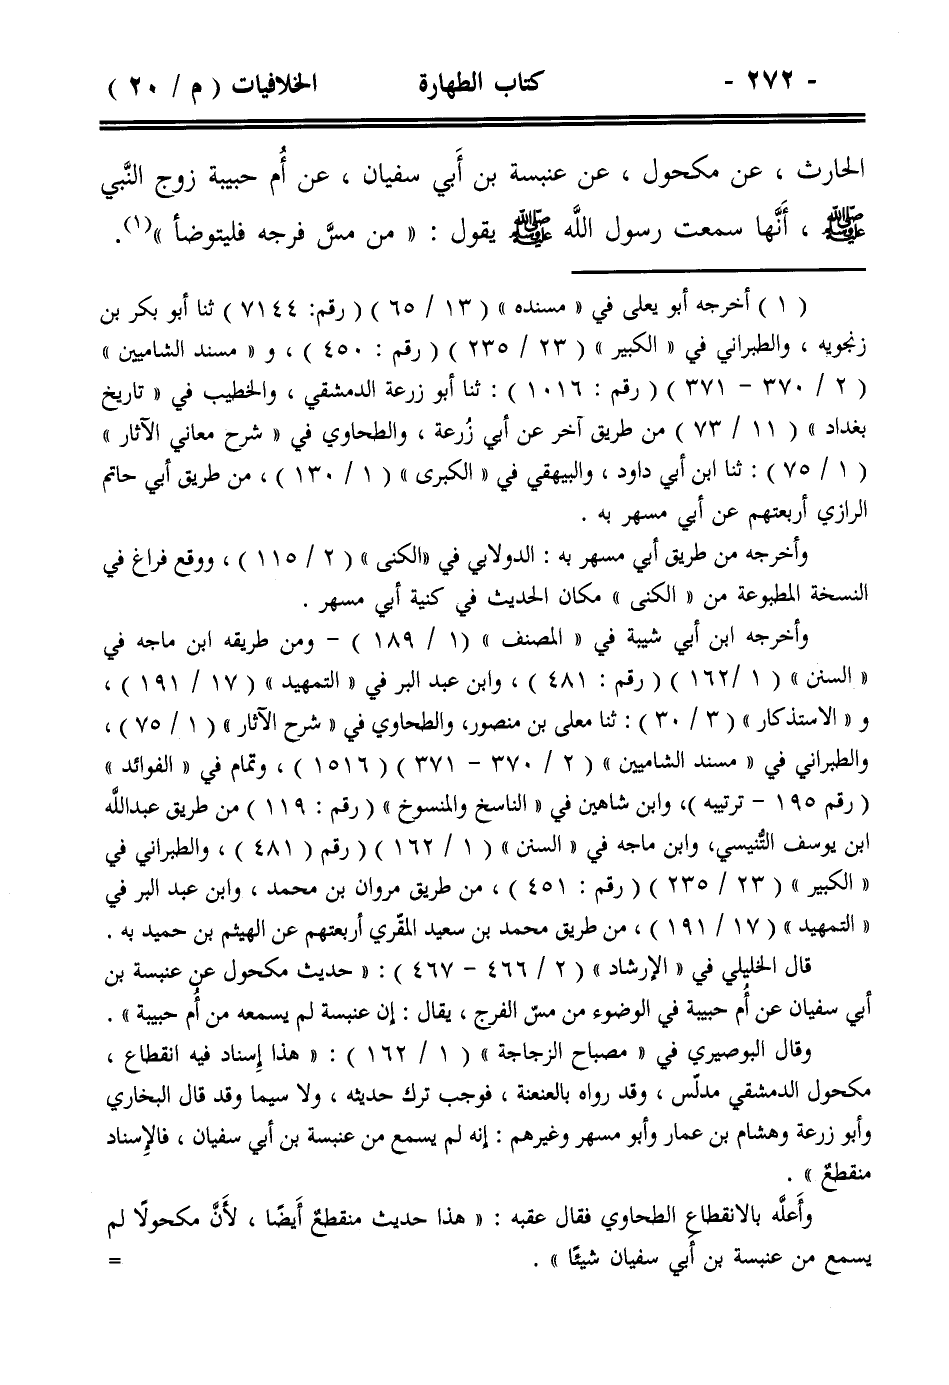 - ٢٧٢ - كتاب الطهارة الخلافيات ( م / ٢٠ )
الحارث ، عن مكحول ، عن عنبسة بن أَبي سفيان ، عن أُم حبيبة زوج النَّبي
ﷺ ، أَنَّها سمعت رسول اللَّه ﷺ يقول : « من مسَّ فرجه فليتوضأ »(١).
( ١ ) أخرجه أبو يعلى في « مسنده » ( ١٣ / ٦٥ ) ( رقم: ٧١٤٤ ) ثنا أبو بكر بن
زنجويه ، والطبراني في « الكبير » ( ٢٣ / ٢٣٥ ) ( رقم : ٤٥٠ ) ، و « مسند الشاميين »
( ٢ / ٣٧٠ - ٣٧١ ) ( رقم : ١٠١٦ ) : ثنا أبو زرعة الدمشقي ، والخطيب في « تاريخ
بغداد » ( ١١ / ٧٣ ) من طريق آخر عن أبي زُرعة ، والطحاوي في « شرح معاني الآثار »
( ١ / ٧٥ ) : ثنا ابن أبي داود ، والبيهقي في « الكبرى » ( ١ / ١٣٠ ) ، من طريق أبي حاتم
الرازي أربعتهم عن أبي مسهر به .
وأخرجه من طريق أبي مسهر به : الدولابي في «الكنى » ( ٢ / ١١٥ ) ، ووقع فراغ في
النسخة المطبوعة من « الكنى » مكان الحديث في كنية أبي مسهر .
وأخرجه ابن أبي شيبة في « المصنف » (١ / ١٨٩ ) - ومن طريقه ابن ماجه في
« السنن » ( ١ /١٦٢ ) ( رقم : ٤٨١ ) ، وابن عبد البر في « التمهيد » ( ١٧ / ١٩١ ) ،
و « الاستذكار » ( ٣ / ٣٠ ) : ثنا معلى بن منصور، والطحاوي في « شرح الآثار » ( ١ / ٧٥ ) ،
والطبراني في « مسند الشاميين » ( ٢ / ٣٧٠ - ٣٧١ ) ( ١٥١٦ ) ، وتمام في « الفوائد »
( رقم ١٩٥ - ترتيبه )، وابن شاهين في « الناسخ والمنسوخ » ( رقم : ١١٩ ) من طريق عبداللَّه
ابن يوسف التُّنيسي، وابن ماجه في « السنن » ( ١ / ١٦٢ ) ( رقم ( ٤٨١ ) ، والطبراني في
« الكبير » ( ٢٣ / ٢٣٥ ) ( رقم : ٤٥١ ) ، من طريق مروان بن محمد ، وابن عبد البر في
« التمهيد » ( ١٧ / ١٩١ ) ، من طريق محمد بن سعيد المقّري أربعتهم عن الهيثم بن حميد به .
قال الخليلي في « الإرشاد » ( ٢ / ٤٦٦ - ٤٦٧ ) : « حديث مكحول عن عنبسة بن
أبي سفيان عن أُم حبيبة في الوضوء من مسّ الفرج ، يقال : إن عنبسة لم يسمعه من أُم حبيبة » .
وقال البوصيري في « مصباح الزجاجة » ( ١ / ١٦٢ ) : « هذا إسناد فيه انقطاع ،
مكحول الدمشقي مدلّس ، وقد رواه بالعنعنة ، فوجب ترك حديثه ، ولا سيما وقد قال البخاري
وأبو زرعة وهشام بن عمار وأبو مسهر وغيرهم : إنه لم يسمع من عنبسة بن أبي سفيان ، فالإسناد
منقطعٌ » .
وأَعلَّه بالانقطاع الطحاوي فقال عقبه : « هذا حديث منقطعٌ أَيضًا ، لأَنَّ مكحولًا لم
يسمع من عنبسة بن أَبي سفيان شيئًا » . =